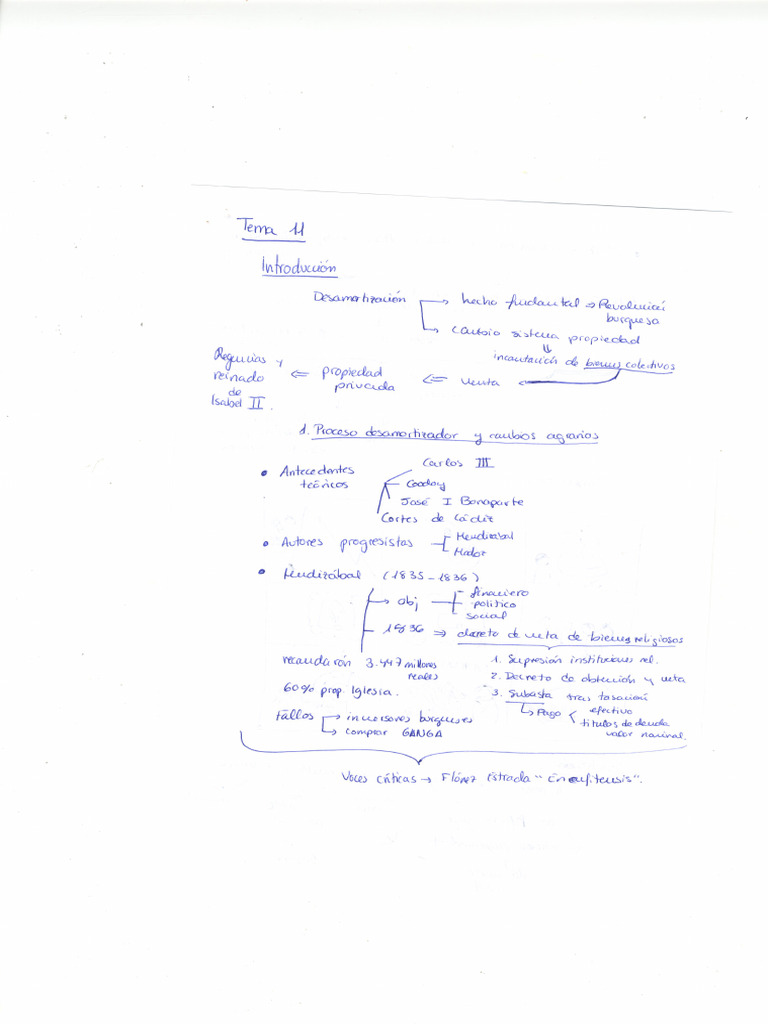 Tema 11
Introducción
Desamortización → hecho fundantal → Revolución
burguesa
→ cambio sistema propiedad
⇓
incautación de bienes colectivos
Regencias y
reinado
de
Isabel II.
⇐ propiedad
privada
⇐ venta
1. Proceso desamortizador y cambios agrarios
• Antecedentes
teóricos
Carlos III
Godoy
José I Bonaparte
Cortes de Cádiz
• Autores progresistas
Mendizabal
Madoz
• Mendizábal (1835-1836)
→ obj
- financiero
- político
- social
1836 ⇒ decreto de venta de bienes religiosos
1. Supresión instituciones rel.
2. Decreto de obtención y venta
3. Subasta tras tasación
↳ Pago < efectivo
títulos de deuda
valor nominal.
recaudarón 3.447 millones
reales
60% prop. Iglesia.
Fallos → inversores burgueses
→ comprar GANGA
Voces críticas → Flórez Estrada "Enfiteusis".